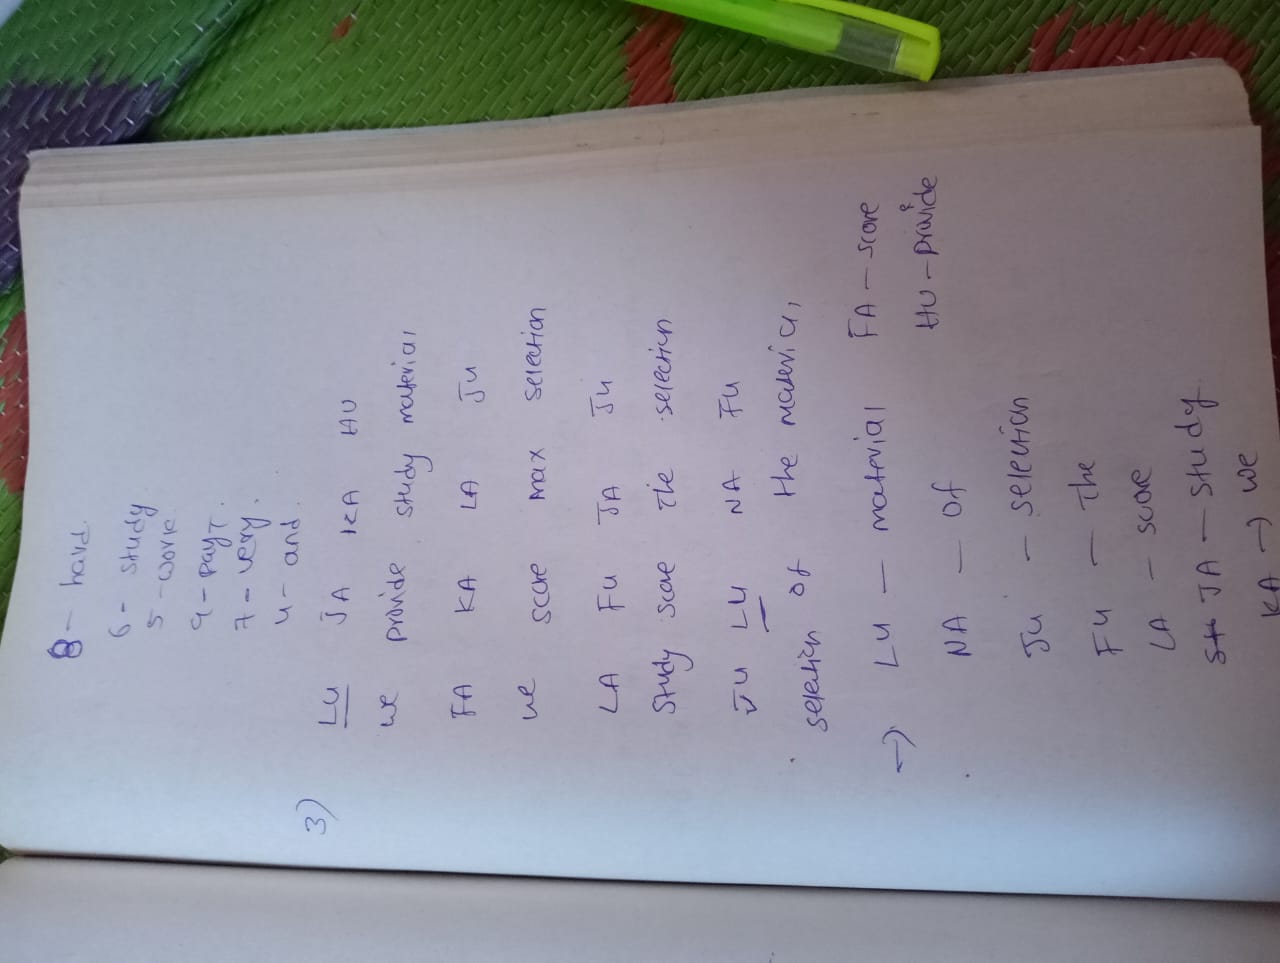 8 - hard
6 - study
5 - work
9 - pay
7 - very
4 - and
3) LU JA KA HU
we provide study material
FA KA LA JU
we score max selection
LA FU JA JU
Study score The selection
JU LU NA FU
selection of the material
→ LU - material FA - score
NA - of HU - provide
JU - selection
FU - The
LA - score
JA - study
KA → we